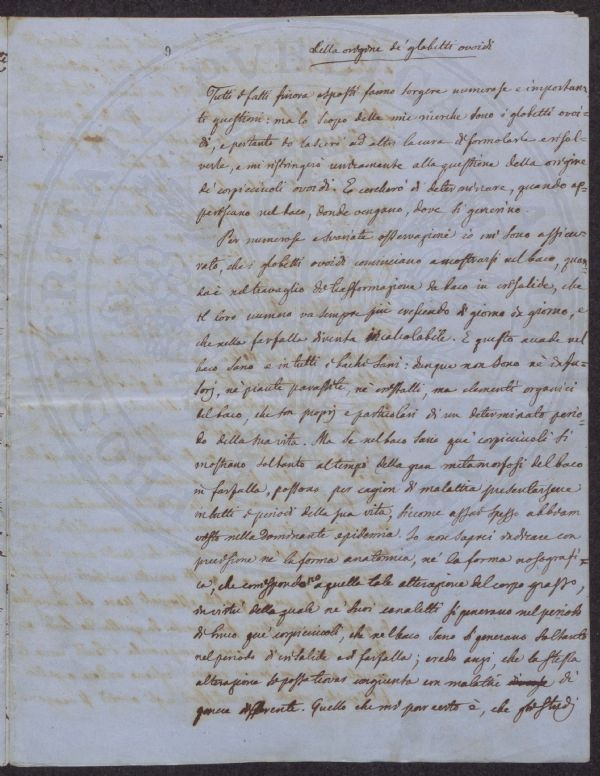 9
Della origine de' globetti ovoidi
Tutti i fatti finora esposti fanno sorgere numerose e importan-
ti questioni: ma lo scopo delle mie ricerche sono i globetti ovoi-
di, e pertanto io lascerò ad altri la cura di formolarle e risol-
verle, e mi ristringerò unicamente alla questione della origine
de' corpicciuoli ovoidi. E cercherò di determinare, quando ap-
periscano nel baco, donde vengano, dove si generino.
Per numerose e svariate osservazioni io mi sono assicu-
rato, che i globetti ovoidi cominciano a mostrarsi nel baco, quan-
do è nel travaglio di trasformazione da baco in crisalide, che
il loro numero va sempre più crescendo di giorno in giorno, e
che nella farfalla diventa incalcolabile. E questo accade nel
baco sano e in tutti i bachi sani: dunque non sono nè infu-
sorj, nè piante parassite, nè cristalli, ma elementi organici
del baco, che son proprj e particolari di un determinato perio-
do della sua vita. Ma se nel baco sano que' corpicciuoli si
mostrano soltanto al tempo della gran metamorfosi del baco
in farfalla, possono per cagion di malattia presentarsene
in tutti i periodi della sua vita, siccome assai spesso abbiam
visto nella dominante epidemia. Io non saprei indicare con
precisione nè la forma anatomica, nè la forma nosografi-
ca, che corrispondono a quella tale alterazione del corpo grasso,
in virtù della quale ne' suoi canaletti si generano nel periodo
di bruco que' corpicciuoli, che nel baco sano si generano soltanto
nel periodo di crisalide e di farfalla; credo anzi, che la stessa
alterazione si possa trovar congiunta con malattie di
genere differente. Quello che mi par certo è, che gli studj